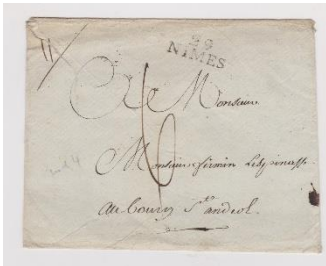 29
NIMES
A Monsieur
Monsieur firmin Lespinasse
au bourg St andeol